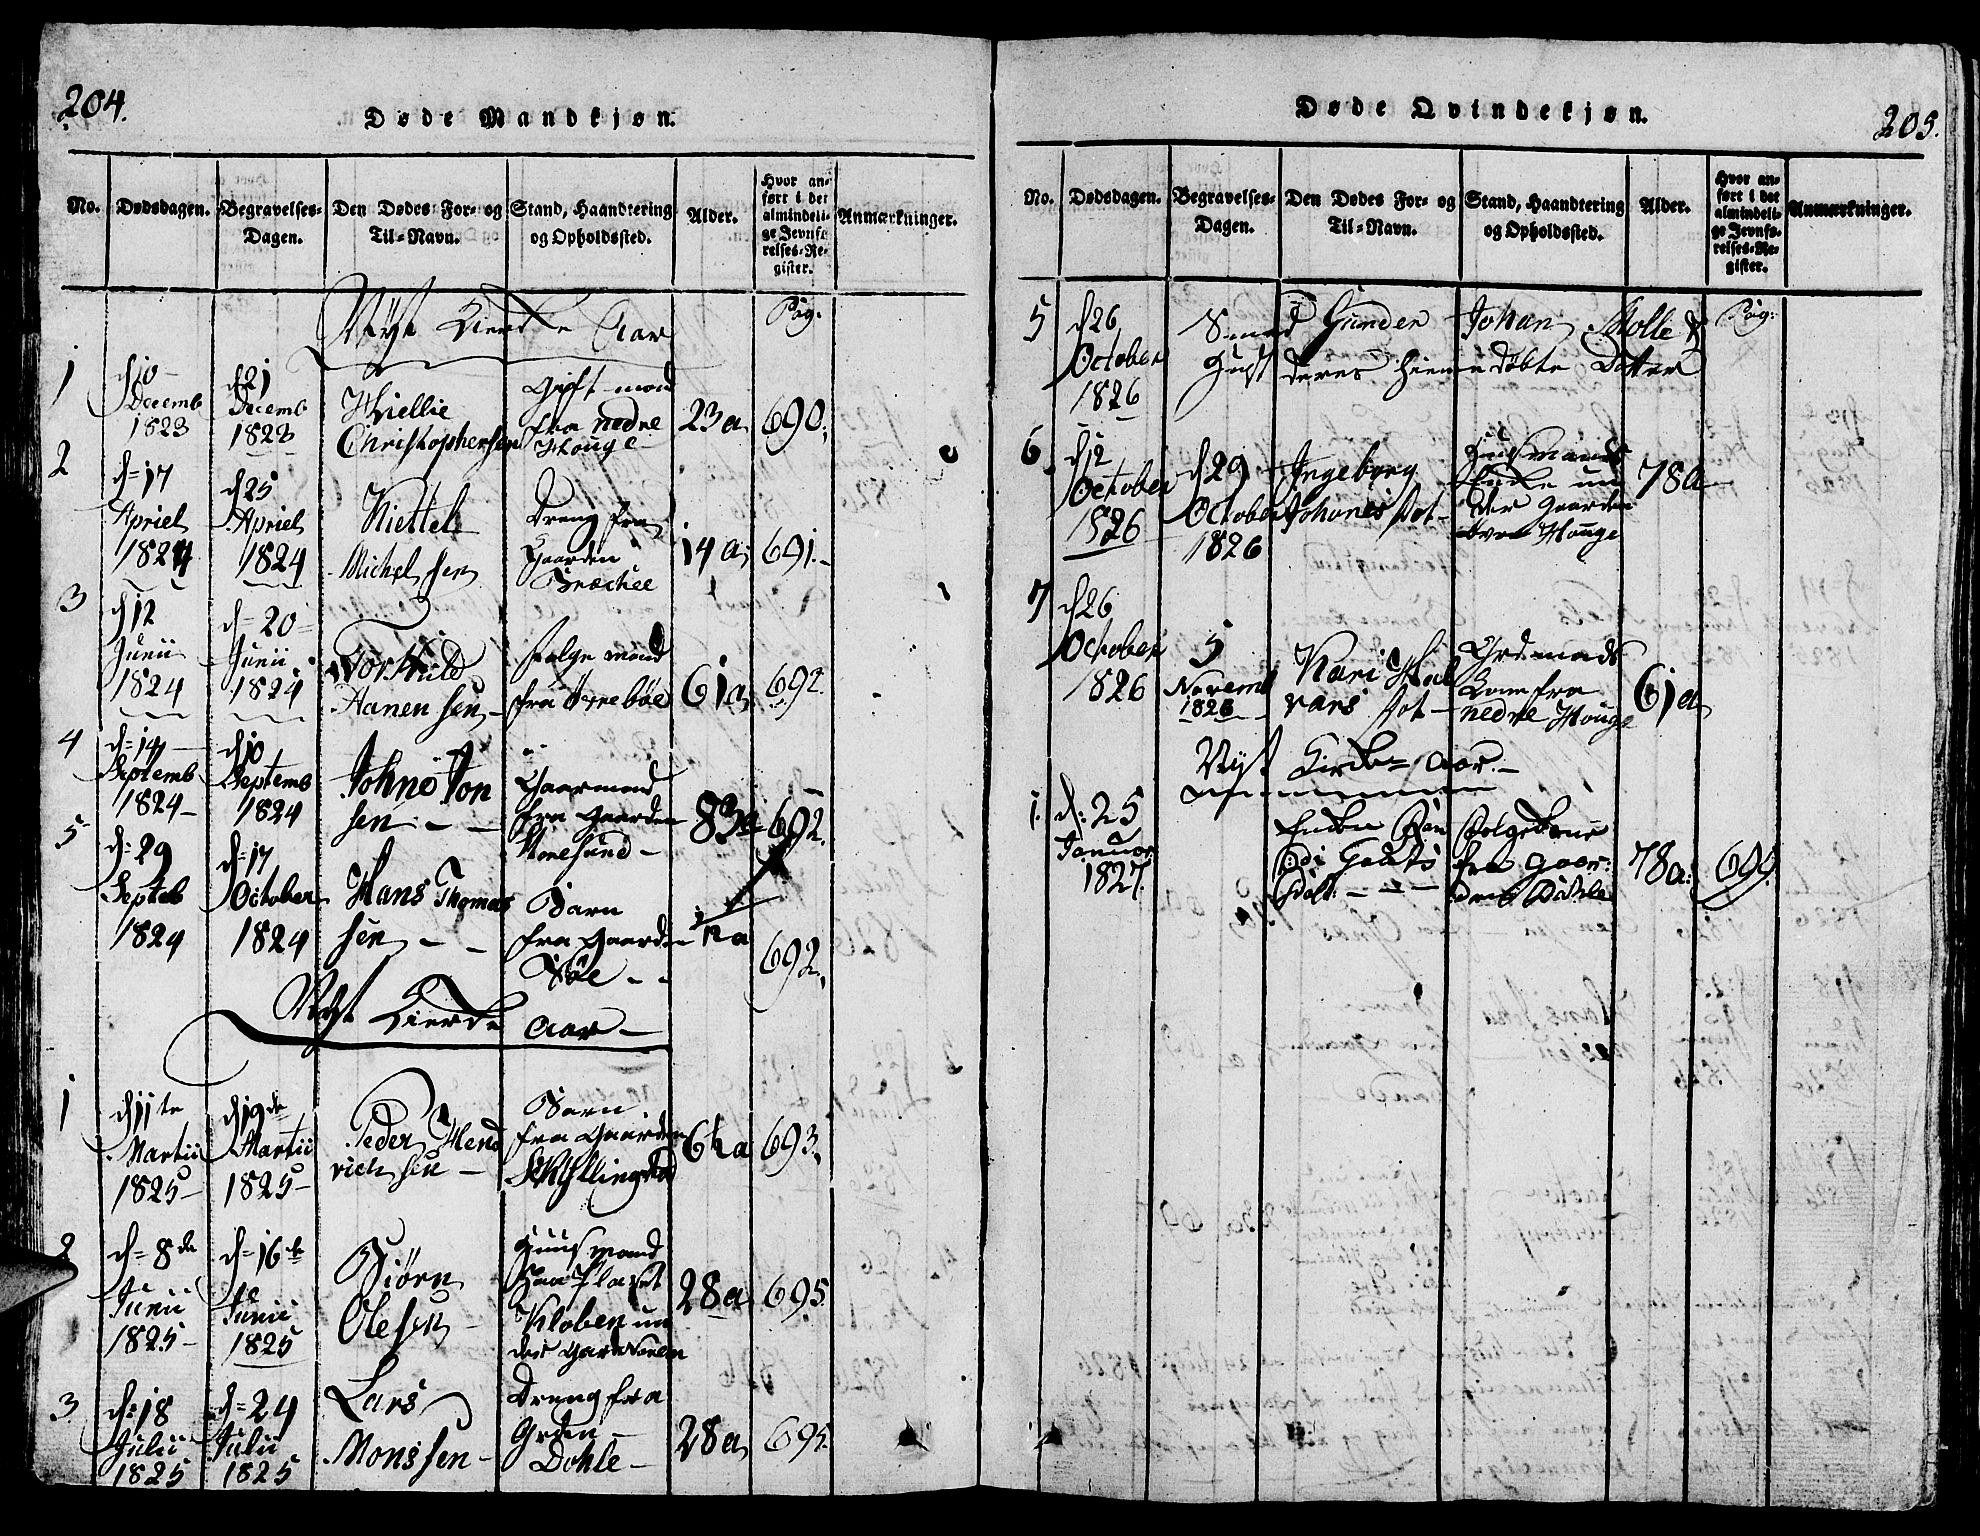 204.
Døde Mandkjøn.
No.
Dødsdagen.
Begravelses-
Dagen.
Den Dødes For- og
Til-Navn.
Stand, Haandtering
og Opholdssted.
Alder.
Hvor an-
ført i det
almindeli-
ge Jevnfø-
relses-Re-
gister.
Anmærkninger.
Nÿt Kierke Aar
Pag:
1
d 10
Decemb
1823
d 21
Decemb
1823
Kiellie
Christophersen
Gift mand
fra nedre
Houge
23 a
690.
2
d= 17
Apriel
1824
d 25
Apriel
1824
Kiettel
Michelsen
Dreng fra
Gaarden
Bræckee
14 a
691.
3
d 12
Junii
1824
d= 20
Junii
1824
Torkild
Aanensen
Folge mand
fra Ørrebøe
61 a
692.
4
d= 14
Septemb
1824
d 10
Septemb
1824
Johne Jon
sen
Gaarmand
fra Gaarden
83 a
692.
5
d= 29
Septeb
1824
d= 17
October
1824
Hans Thomas
sen
Barn
fra Gaarden
692.
Nÿt Kierke Aar
1
d 11te
Martii
1825
d 19de
Martii
1825
Peder Hend
richsen
Barn
fra Gaarden
693.
2
d= 8de
Junii
1825
d= 16de
Junii
1825
Biørn
Olesen
Huusmand
fraa Plaset
Kloben un
der
28 a
695.
3
d= 18
Julii
1825
d= 24
Julii
1825
Lars
Monssen
Dreng fra
Grden
Dohle
28 a
695.
Døde Qvindekjøn.
205.
No.
Dødsdagen.
Begravelses-
Dagen.
Den Dødes For- og
Til-Navn.
Stand, Haandtering
og Opholdssted.
Alder.
Hvor an-
ført i det
almindeli-
ge Jevnfø-
relses-Re-
gister.
Anmærkninger.
Pag:
5
d 26
October
1826
Smed Gunder Johan Molle &
deres hieme døbte Datter
6
d 12
October
1826
d 29
October
1826
Ingeborg
Johanes dot
Huusmands
Enke un
der Gaarden
øvre Houge
78 a
7
d 26
October
1826
5
Novemb
1826
Kari Hal
vars dot
Grdmads
Kone fra
nedre Houge
61 a
Nyt Kirke Aar.
1.
d: 25
Januar
1827.
Enken
Folgekone
fra Gaar
den Dohle
78 a:
699.